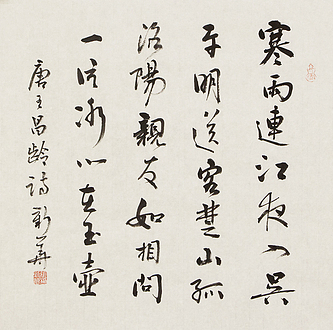 寒雨連江夜入吴
平明送客楚山孤
洛陽親友如相問
一片冰心在玉壺
唐王昌齡詩 新華